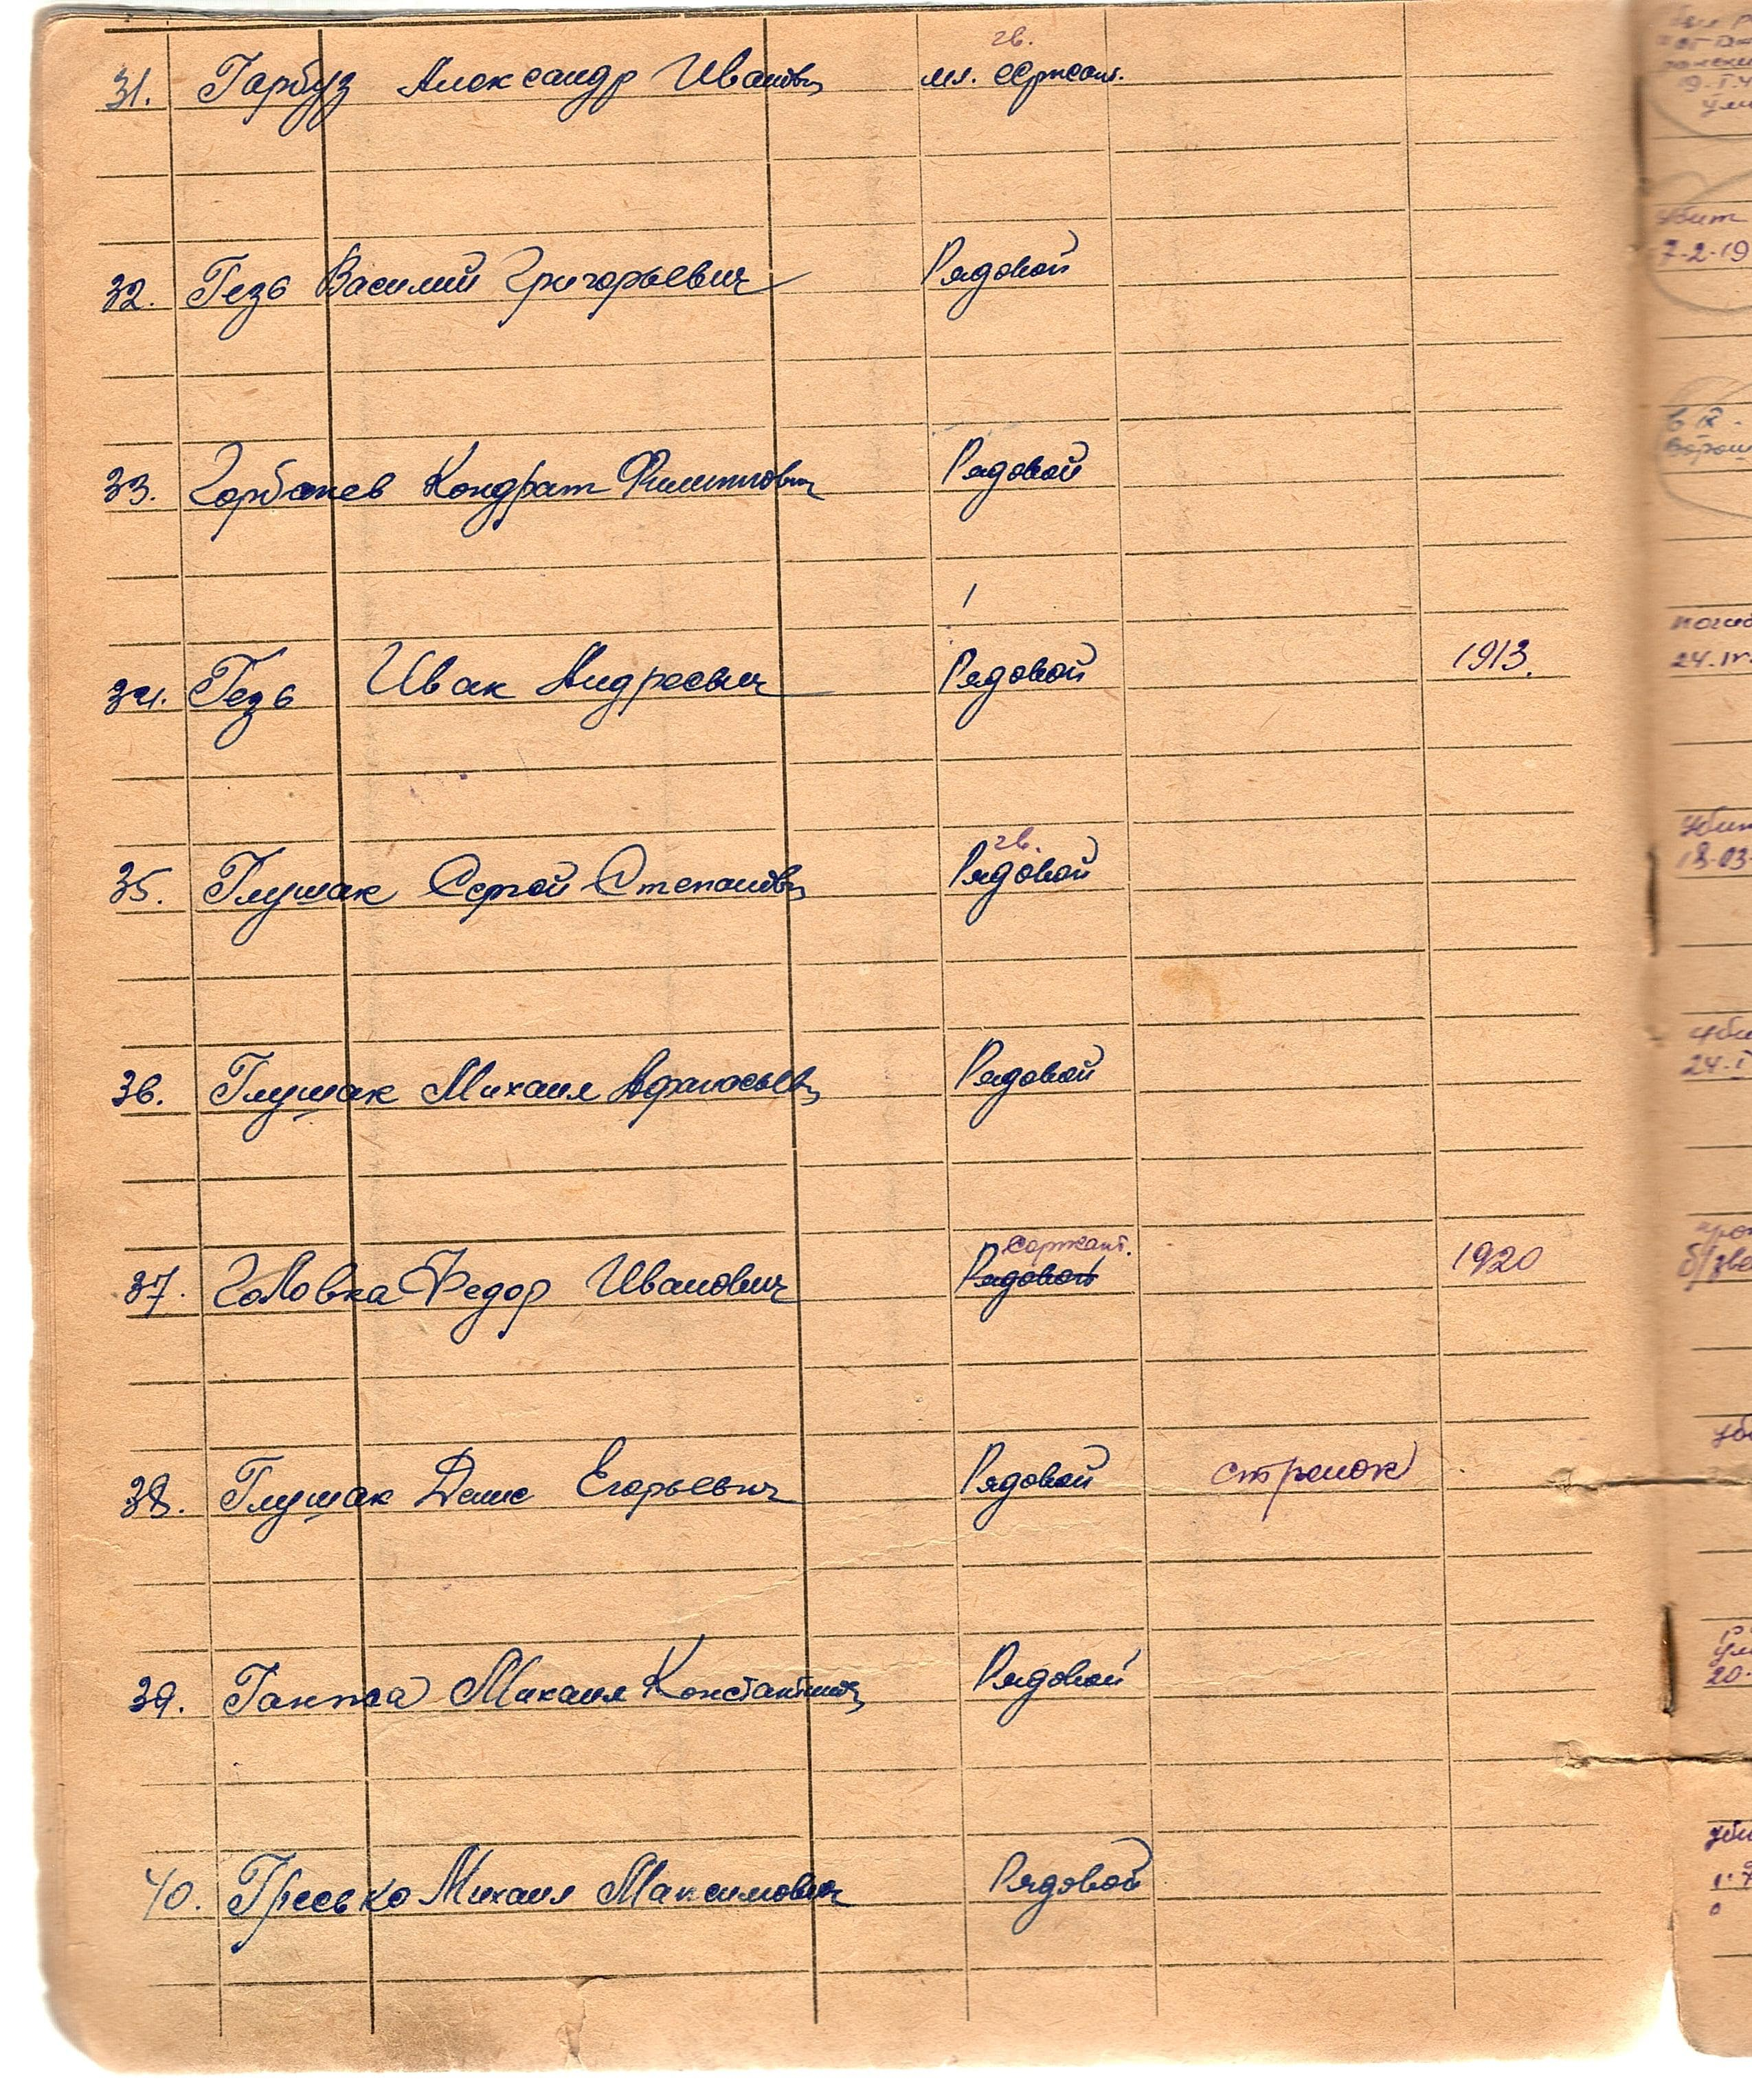 гв.
31. Гарбуз Александр Иванович мл. сержант.
32. Гезь Василий Григорьевич Рядовой
33. Горбачев Кондрат Филиппович Рядовой
34. Гезь Иван Андреевич Рядовой 1913.
гв.
35. Глушак Сергей Степанович Рядовой
36. Глушак Михаил Афанасьевич Рядовой
сержант.
37. Головка Федор Иванович Рядовой 1920
38. Глушак Денис Егорьевич Рядовой стрелок
39. Ганжа Михаил Константинович Рядовой
40. Гресько Михаил Максимович Рядовой
7-2-19
24. IV.
18-03-
24. I
20-